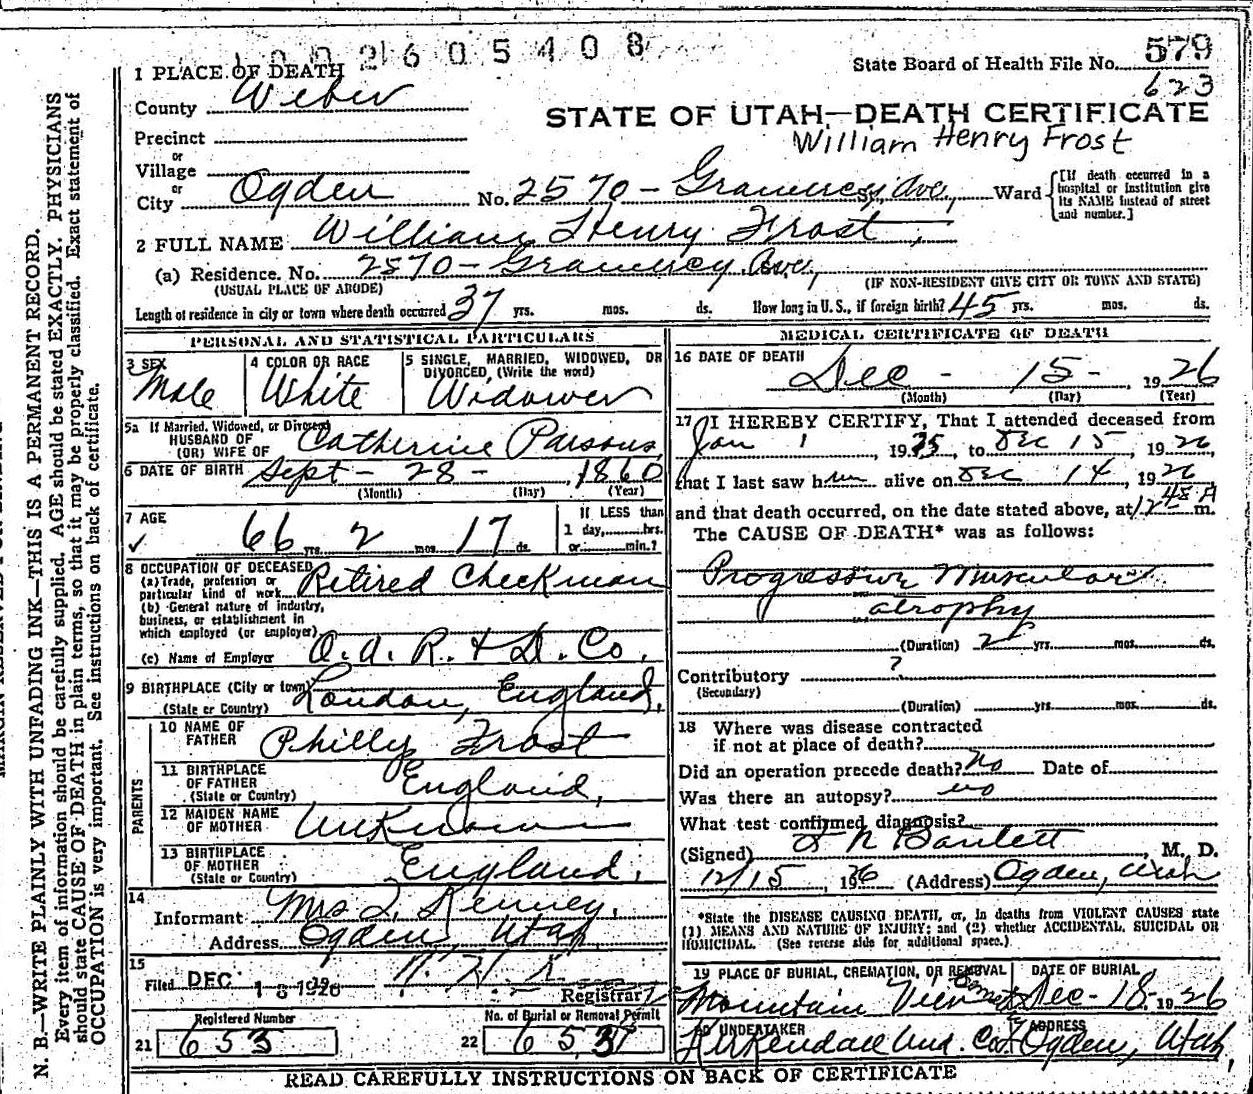 1002605408
579
State Board of Health File No.
623
1 PLACE OF DEATH
County Weber
STATE OF UTAH—DEATH CERTIFICATE
William Henry Frost
Precinct
or
Village
or
City Ogden No. 2570 - Gramercy Ave, St., Ward
[If death occurred in a hospital or institution give its NAME instead of street and number.]
2 FULL NAME William Henry Frost,
(a) Residence. No. 2570 - Gramercy Ave,
(USUAL PLACE OF ABODE) (IF NON-RESIDENT GIVE CITY OR TOWN AND STATE)
Length of residence in city or town where death occurred 37 yrs. mos. ds. How long in U.S., if foreign birth? 45 yrs. mos. ds.
PERSONAL AND STATISTICAL PARTICULARS
3 SEX 4 COLOR OR RACE 5 SINGLE, MARRIED, WIDOWED, OR
DIVORCED, (Write the word)
Male White Widower
5a If Married, Widowed, or Divorced
HUSBAND OF
(OR) WIFE OF Catherine Parsons,
6 DATE OF BIRTH Sept - 28 - , 1860
(Month) (Day) (Year)
7 AGE If LESS than
66 yrs. 2 mos. 17 ds. 1 day, hrs.
or min.?
8 OCCUPATION OF DECEASED
(a) Trade, profession or
particular kind of work Retired Checkman
(b) General nature of industry,
business, or establishment in
which employed (or employer)
(c) Name of Employer O. U. R. & D. Co.
9 BIRTHPLACE (City or town)
(State or Country) London, England,
PARENTS
10 NAME OF
FATHER Philly Frost
11 BIRTHPLACE
OF FATHER
(State or Country) England,
12 MAIDEN NAME
OF MOTHER Unknown
13 BIRTHPLACE
OF MOTHER
(State or Country) England,
14
Informant Mrs Kenney,
Address Ogden, Utah,
15
Filed DEC 18 1926
Registrar
Registered Number
21 653
No. of Burial or Removal Permit
22 653
MEDICAL CERTIFICATE OF DEATH
16 DATE OF DEATH
Dec - 15 - , 1926
(Month) (Day) (Year)
17 I HEREBY CERTIFY, That I attended deceased from
Jan 1, 1925, to Dec 15, 1926,
that I last saw him alive on Dec 14, 1926
and that death occurred, on the date stated above, at 12 48 A m.
The CAUSE OF DEATH* was as follows:
Progressive Muscular
atrophy
(Duration) 2 yrs. mos. ds.
Contributory ?
(Secondary)
(Duration) yrs. mos. ds.
18 Where was disease contracted
if not at place of death?
Did an operation precede death? No Date of
Was there an autopsy? no
What test confirmed diagnosis?
(Signed) Bartlett, M. D.
12/15, 1926 (Address) Ogden, Utah
*State the DISEASE CAUSING DEATH, or, in deaths from VIOLENT CAUSES state
(1) MEANS AND NATURE OF INJURY; and (2) whether ACCIDENTAL, SUICIDAL OR
HOMICIDAL. (See reverse side for additional space.)
19 PLACE OF BURIAL, CREMATION, OR REMOVAL DATE OF BURIAL
Mountain View Dec - 18 - 1926
20 UNDERTAKER ADDRESS
Kirkendall Und. Co. Ogden, Utah,
READ CAREFULLY INSTRUCTIONS ON BACK OF CERTIFICATE
N. B.—WRITE PLAINLY WITH UNFADING INK—THIS IS A PERMANENT RECORD.
Every item of information should be carefully supplied. AGE should be stated EXACTLY. PHYSICIANS
should state CAUSE OF DEATH in plain terms, so that it may be properly classified. Exact statement of
OCCUPATION is very important. See instructions on back of certificate.